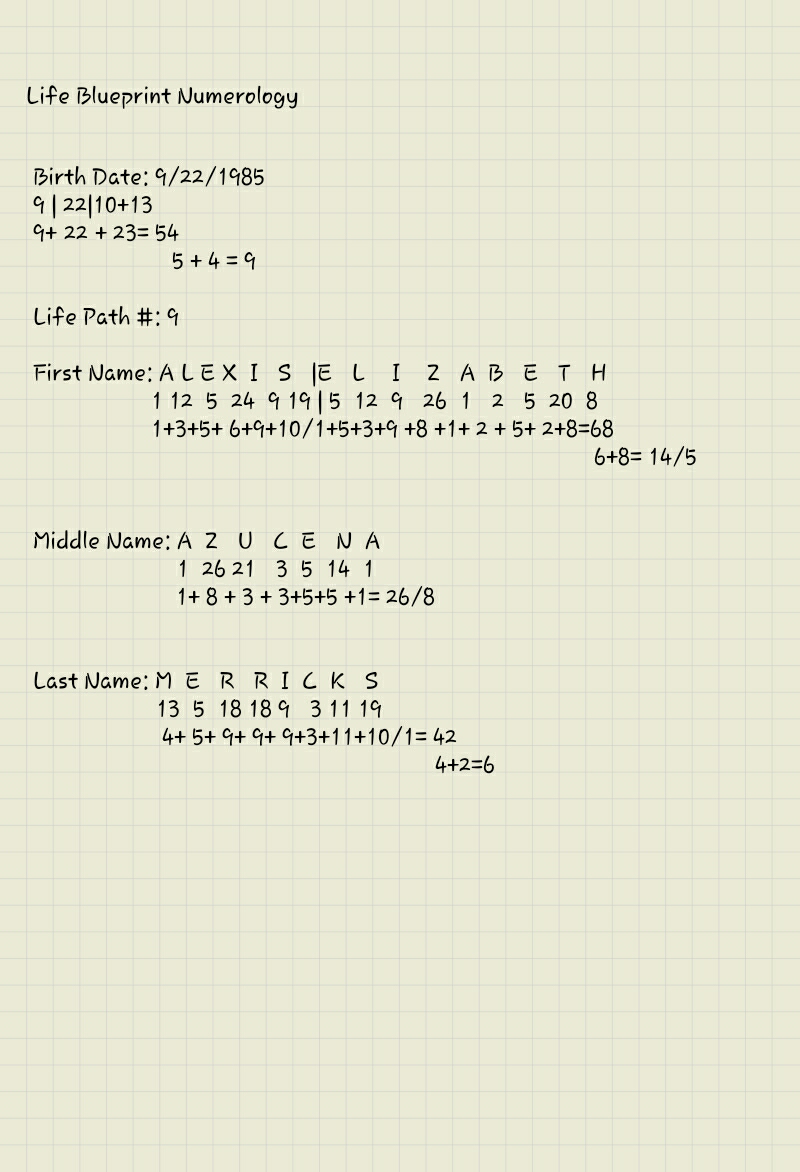 Life Blueprint Numerology
Birth Date: 9/22/1985
9 | 22|10+13
9+ 22 + 23= 54
5 + 4 = 9
Life Path #: 9
First Name: A L E X I S |E L I Z A B E T H
1 12 5 24 9 19 | 5 12 9 26 1 2 5 20 8
1+3+5+ 6+9+10/1+5+3+9 +8 +1+ 2 + 5+ 2+8=68
6+8= 14/5
Middle Name: A Z U C E N A
1 26 21 3 5 14 1
1+ 8 + 3 + 3+5+5 +1= 26/8
Last Name: M E R R I C K S
13 5 18 18 9 3 11 19
4+ 5+ 9+ 9+ 9+3+11+10/1= 42
4+2=6